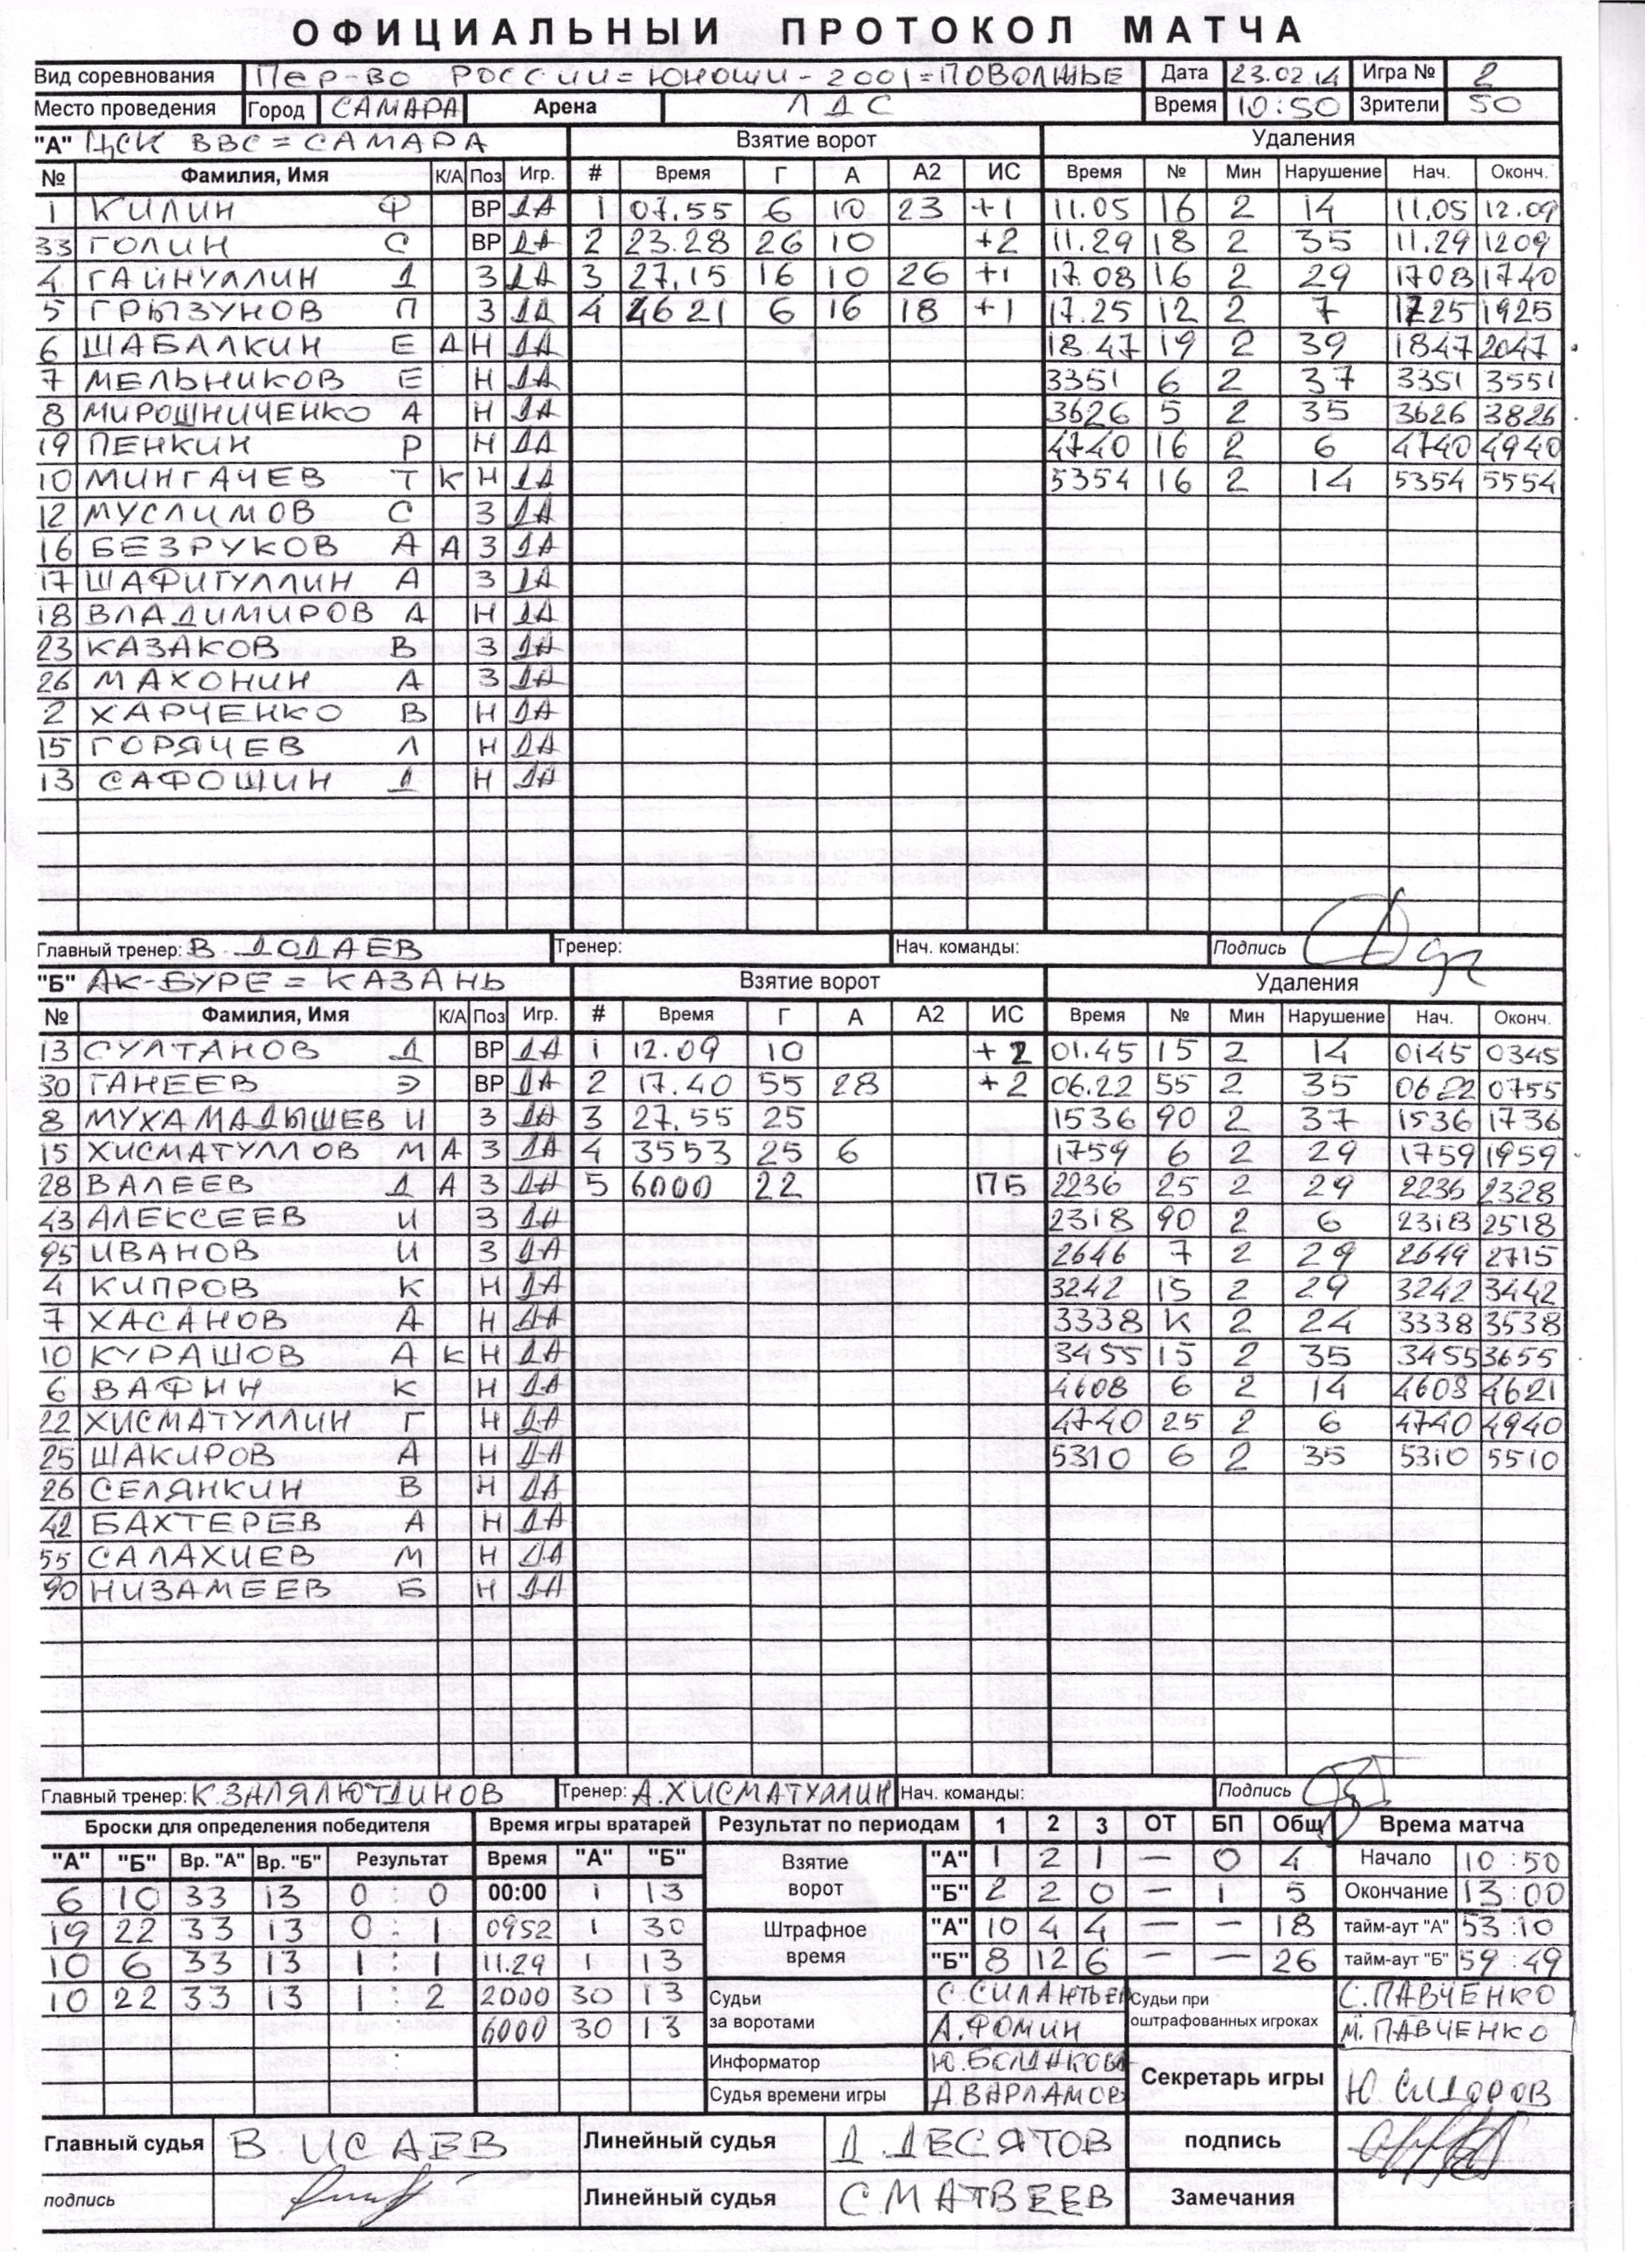 ОФИЦИАЛЬНЫЙ ПРОТОКОЛ МАТЧА
Вид соревнования ПЕР-ВО РОССИИ=ЮНОШИ-2001=ПОВОЛЖЬЕ Дата 23.02.14 Игра № 2
Место проведения Город САМАРА Арена ЛДС Время 10:50 Зрители 50
"А" ЦСК ВВС=САМАРА Взятие ворот Удаления
№ Фамилия, Имя К/А Поз Игр. # Время Г А А2 ИС Время № Мин Нарушение Нач. Оконч.
1 КИЛИН Ф ВР ДА 1 07.55 6 10 23 +1 11.05 16 2 14 11.05 12.09
33 ГОЛИН С ВР ДА 2 23.28 26 10 +2 11.29 18 2 35 11.29 1209
4 ГАЙНУЛЛИН Д З ДА 3 27.15 16 10 26 +1 17.08 16 2 29 1708 1740
5 ГРЫЗУНОВ П З ДА 4 4621 6 16 18 +1 17.25 12 2 7 1725 1925
6 ШАБАЛКИН Е А Н ДА 18.47 19 2 39 1847 2047
7 МЕЛЬНИКОВ Е Н ДА 3351 6 2 37 3351 3551
8 МИРОШНИЧЕНКО А Н ДА 3626 5 2 35 3626 3826
19 ПЕНКИН Р Н ДА 4740 16 2 6 4740 4940
10 МИНГАЧЕВ Т К Н ДА 5354 16 2 14 5354 5554
12 МУСЛИМОВ С З ДА
16 БЕЗРУКОВ А А З ДА
17 ШАФИГУЛЛИН А З ДА
18 ВЛАДИМИРОВ А Н ДА
23 КАЗАКОВ В З ДА
26 МАХОНИН А З ДА
2 ХАРЧЕНКО В Н ДА
15 ГОРЯЧЕВ Л Н ДА
13 САФОШИН Д Н ДА
Главный тренер: В. ДОДАЕВ Тренер: Нач. команды: Подпись
"Б" АК-БУРЕ=КАЗАНЬ Взятие ворот Удаления
№ Фамилия, Имя К/А Поз Игр. # Время Г А А2 ИС Время № Мин Нарушение Нач. Оконч.
13 СУЛТАНОВ Д ВР ДА 1 12.09 10 +2 01.45 15 2 14 0145 0345
30 ГАНЕЕВ Э ВР ДА 2 17.40 55 28 +2 06.22 55 2 35 0622 0755
8 МУХАМАДЫШЕВ И З ДА 3 27.55 25 1536 90 2 37 1536 1736
15 ХИСМАТУЛЛОВ М А З ДА 4 3553 25 6 1759 6 2 29 1759 1959
28 ВАЛЕЕВ Д А З ДА 5 6000 22 ПБ 2236 25 2 29 2236 2328
43 АЛЕКСЕЕВ И З ДА 2318 90 2 6 2318 2518
95 ИВАНОВ И З ДА 2646 7 2 29 2649 2715
4 КИПРОВ К Н ДА 3242 15 2 29 3242 3442
7 ХАСАНОВ А Н ДА 3338 К 2 24 3338 3538
10 КУРАШОВ А К Н ДА 3455 15 2 35 3455 3655
6 ВАФИН К Н ДА 4608 6 2 14 4608 4621
22 ХИСМАТУЛЛИН Г Н ДА 4740 25 2 6 4740 4940
25 ШАКИРОВ А Н ДА 5310 6 2 35 5310 5510
26 СЕЛЯНКИН В Н ДА
42 БАХТЕРЕВ А Н ДА
55 САЛАХИЕВ М Н ДА
90 НИЗАМЕЕВ Б Н ДА
Главный тренер: К.ЗАЛЯЛЮТДИНОВ Тренер: А.ХИСМАТУЛЛИН Нач. команды: Подпись
Броски для определения победителя Время игры вратарей Результат по периодам 1 2 3 ОТ БП Общ Врема матча
"А" "Б" Вр. "А" Вр. "Б" Результат Время "А" "Б" Взятие ворот "А" 1 2 1 — 0 4 Начало 10:50
6 10 33 13 0 : 0 00:00 1 13 "Б" 2 2 0 — 1 5 Окончание 13:00
19 22 33 13 0 : 1 0952 1 30 Штрафное время "А" 10 4 4 — — 18 тайм-аут "А" 53:10
10 6 33 13 1 : 1 11.29 1 13 "Б" 8 12 6 — — 26 тайм-аут "Б" 59:49
10 22 33 13 1 : 2 2000 30 13 Судьи за воротами С.СИЛАНТЬЕВ Судьи при оштрафованных игроках С.ПАВЧЕНКО
6000 30 13 А.ФОМИН М.ПАВЧЕНКО
Информатор Секретарь игры Ю.СИДОРОВ
Судья времени игры Д.ВАРЛАМОВ
Главный судья В ИСАЕВ Линейный судья Д.ДЕСЯТОВ подпись
подпись Линейный судья С МАТВЕЕВ Замечания